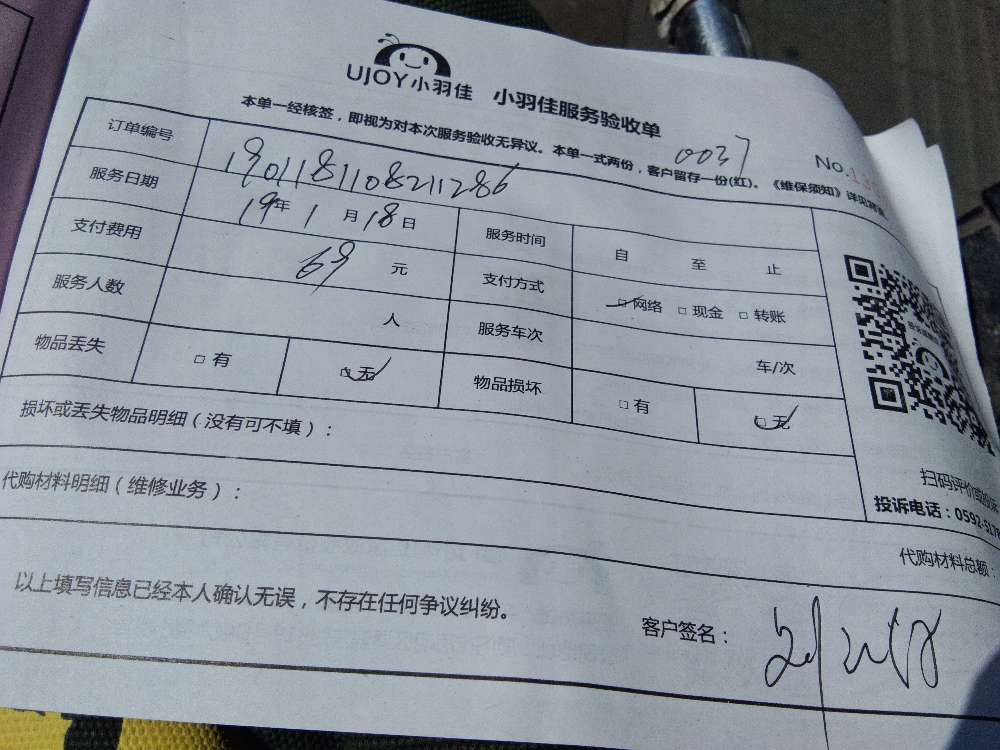 UJOY小羽佳 小羽佳服务验收单
本单一经核签，即视为对本次服务验收无异议。本单一式两份，客户留存一份(红)。《维保须知》详见背面
0037
No.
订单编号 1901181108211286
服务日期 19年 1月 18日 服务时间 自 至 止
支付费用 69 元 支付方式 □网络 □现金 □转账
服务人数 人 服务车次 车/次
物品丢失 □有 □无 物品损坏 □有 □无
损坏或丢失物品明细（没有可不填）：
代购材料明细（维修业务）：
扫码评价
投诉电话：0592-517
代购材料总额：
以上填写信息已经本人确认无误，不存在任何争议纠纷。
客户签名：